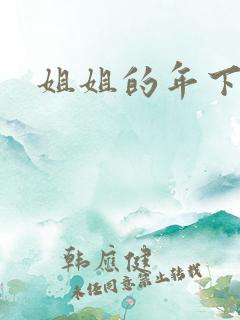 姐姐的年下
韩应健
未经同意禁止转载